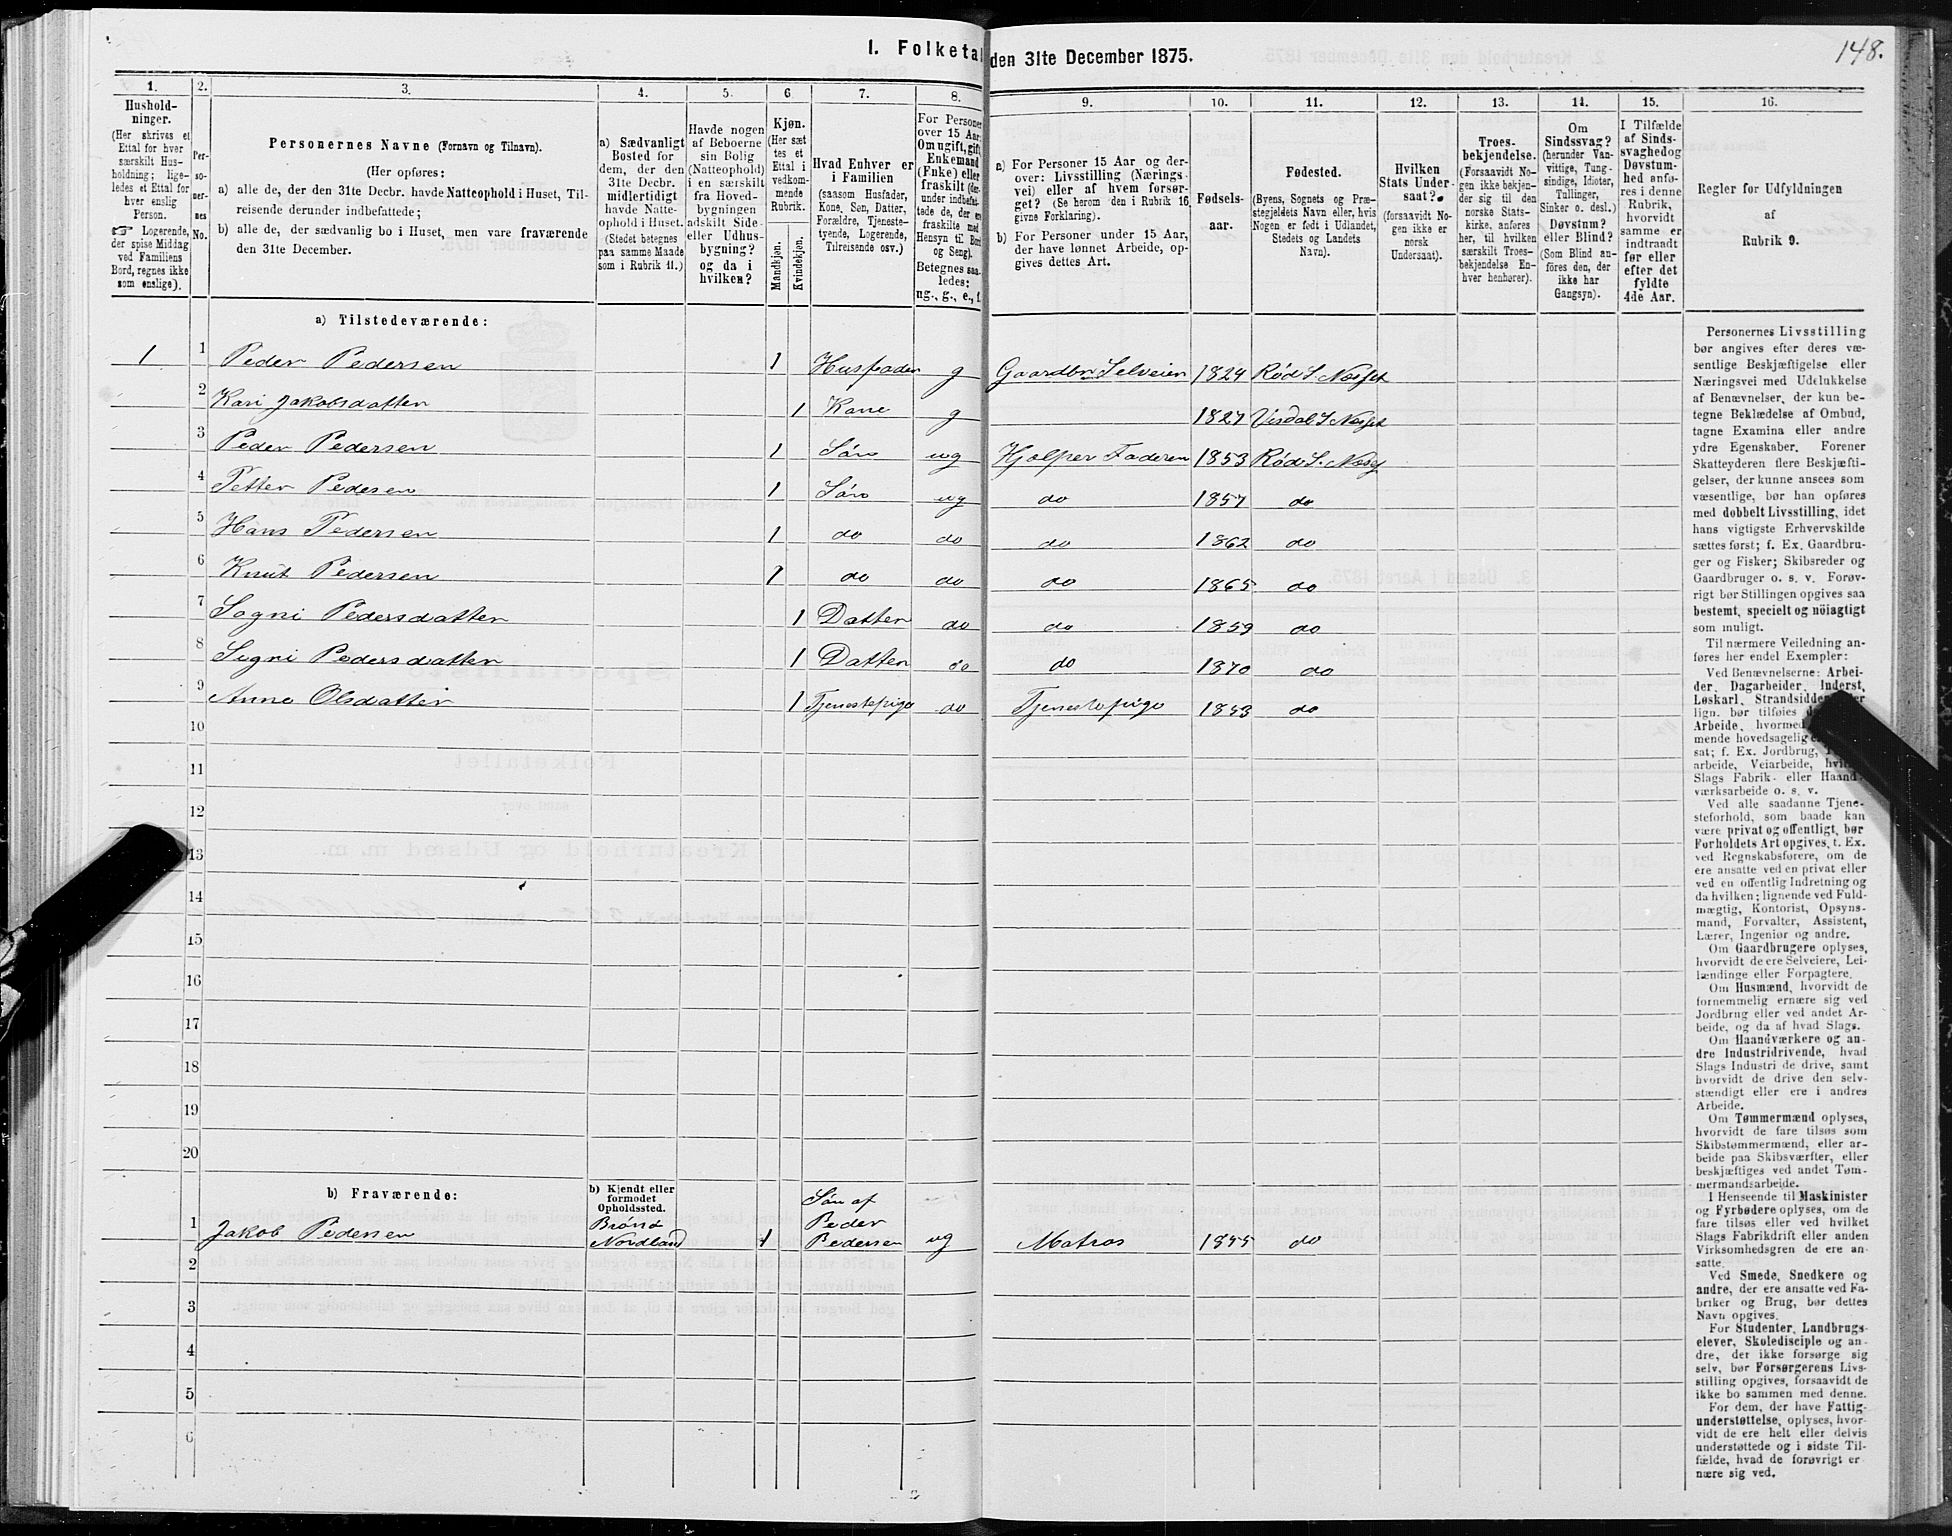 I. Folketal
den 31te December 1875.
148.
1.
Hushold-
ninger.
(Her skrives et
Ettal for hver
særskilt Hus-
holdning; lige-
ledes et Ettal for
hver enslig
Person.
☞ Logerende,
der spise Middag
ved Familiens
Bord, regnes ikke
som enslige).
2.
Per-
so-
ner-
nes
No.
3.
Personernes Navne (Fornavn og Tilnavn).
(Her opføres:
a) alle de, der den 31te Decbr. havde Natteophold i Huset, Til-
reisende derunder indbefattede;
b) alle de, der sædvanlig bo i Huset, men vare fraværende
den 31te December.
4.
a) Sædvanligt
Bosted for
dem, der den
31te Decbr.
midlertidigt
havde Natte-
ophold i Huset.
(Stedet betegnes
paa samme Maade
som i Rubrik 11.)
5.
Havde nogen
af Beboerne
sin Bolig
(Natteophold)
i en særskilt
fra Hoved-
bygningen
adskilt Side-
eller Udhus-
bygning?
og da i
hvilken?
6.
Kjøn.
(Her sæt
tes et
Ettal i
vedkom-
mende
Rubrik.
Mandkjøn.
Kvindekjøn.
7.
Hvad Enhver er
i Familien
(saasom Husfader,
Kone, Søn, Datter,
Forældre, Tjeneste-
tyende, Logerende,
Tilreisende osv.)
8.
For Personer
over 15 Aar:
Om ugift, gift,
Enkemand
(Enke) eller
fraskilt (der-
under indbefat-
tede de, der ere
fraskilte med
Hensyn til Bord
og Seng).
Betegnes saa-
ledes:
ug., g., e., f.
9.
a) For Personer 15 Aar og der-
over: Livsstilling (Nærings-
vei) eller af hvem forsør-
get? (Se herom den i Rubrik 16
givne Forklaring).
b) For Personer under 15 Aar,
der have lønnet Arbeide, op-
gives dettes Art.
10.
Fødsels-
aar.
11.
Fødested.
(Byens, Sognets og Præ-
stegjeldets Navn eller, hvis
Nogen er født i Udlandet,
Stedets og Landets
Navn).
12.
Hvilken
Stats Under-
saat?
(forsaavidt No-
gen ikke er
norsk
Undersaat).
13.
Troes-
bekjendelse.
(Forsaavidt No-
gen ikke bekjen-
der sig til den
norske Stats-
kirke, anføres
her, til hvilken
særskilt Troes-
bekjendelse En-
hver henhører).
14.
Om
Sindssvag?
(herunder Van-
vittige, Tung-
sindige, Idioter,
Tullinger,
Sinker o. desl.)
Døvstum?
eller Blind?
(Som Blind an-
føres den, der
ikke har
Gangsyn).
15.
I Tilfælde
af Sinds-
svaghed og
Døvstum-
hed anfø-
res i denne
Rubrik,
hvorvidt
samme er
indtraadt
før eller
efter det
fyldte
4de Aar.
16.
Regler for Udfyldningen
af
Rubrik 9.
a) Tilstedeværende:
1 1 Peder Pedersen 1 Husfader g Gaardbr Selveier 1824 Rød S. Nesset
2 Kari Jakobsdatter 1 Kone g 1827 Visdal S Nesset
3 Peder Pedersen 1 Søn ug Hjelper Faderen 1853 Rød S. Neset
4 Petter Pedesen 1 Søn ug do 1857 do
5 Hans Pedersen 1 do do do 1862 do
6 Knut Pedersen 1 do do do 1865 do
7 Sogni Pedersdatter 1 Datter do do 1859 do
8 Signi Pedersdatter 1 Datter do do 1870 do
9 Anne Olsdatter 1 Tjenestepige do Tjenestepige 1853 do
10
11
12
13
14
15
16
17
18
19
20
b) Fraværende:
b) Kjendt eller
formodet
Opholdssted.
1 Jakob Pedersen Brønø Nordland 1 Søn af Peder Pedersen ug Matros 1855 do
2
3
4
5
6
Personernes Livsstilling
bør angives efter deres væ-
sentlige Beskjæftigelse eller
Næringsvei med Udelukkelse
af Benævnelser, der kun be-
tegne Beklædelse af Ombud,
tagne Examina eller andre
ydre Egenskaber. Forener
Skatteyderen flere Beskjæfti-
gelser, der kunne ansees som
væsentlige, bør han opføres
med dobbelt Livsstilling, idet
hans vigtigste Erhvervskilde
sættes først; f. Ex. Gaardbru-
ger og Fisker; Skibsreder og
Gaardbruger o. s. v. Forøv-
rigt bør Stillingen opgives saa
bestemt, specielt og nöiagtigt
som muligt.
Til nærmere Veiledning an-
føres her endel Exempler:
Ved Benævnelserne: Arbei-
der, Dagarbeider, Inderst,
Løskarl, Strandsidder
lign. bør tilføies
Arbeide, hvormed
mende hovedsagelig
sat; f. Ex. Jordbrug,
arbeide, Veiarbeide,
Slags Fabrik- eller Haand-
værksarbeide o. s. v.
Ved alle saadanne Tjene-
steforhold, som baade kan
være privat og offentligt, bør
Forholdets Art opgives, t. Ex.
ved Regnskabsførere, om de
ere ansatte ved en privat eller
ved en offentlig Indretning og
da hvilken; lignende ved Fuld-
mægtig, Kontorist, Opsyns-
mand, Forvalter, Assistent,
Lærer, Ingeniør og andre.
Om Gaardbrugere oplyses,
hvorvidt de ere Selveiere, Lei-
lændinge eller Forpagtere.
Om Husmænd, hvorvidt de
fornemmelig ernære sig ved
Jordbrug eller ved andet Ar-
beide, og da af hvad Slags.
Om Haandværkere og an-
dre Industridrivende, hvad
Slags Industri de drive, samt
hvorvidt de drive den selv-
stændigt eller ere i andres
Arbeide.
Om Tømmermænd oplyses,
hvorvidt de fare tilsøs som
Skibstømmermænd, eller ar-
beide paa Skibsværfter, eller
beskjæftiges ved andet Tøm-
mermandsarbeide.
I Henseende til Maskinister
og Fyrbødere oplyses, om de
fare tilsøs eller ved hvilket
Slags Fabrikdrift eller anden
Virksomhedsgren de ere an-
satte.
Ved Smede, Snedkere og
andre, der ere ansatte ved Fa-
briker og Brug, bør dettes
Navn opgives.
For Studenter, Landbrugs-
elever, Skoledisciple og an-
dre, der ikke forsørge sig
selv, bør Forsørgerens Livs-
stilling opgives, forsaavidt de
ikke bo sammen med denne.
For dem, der have Fattig-
understøttelse, oplyses, hvor-
vidt de ere helt eller delvis
understøttede og i sidste Til-
fælde, hvad de forøvrigt er-
nære sig ved.